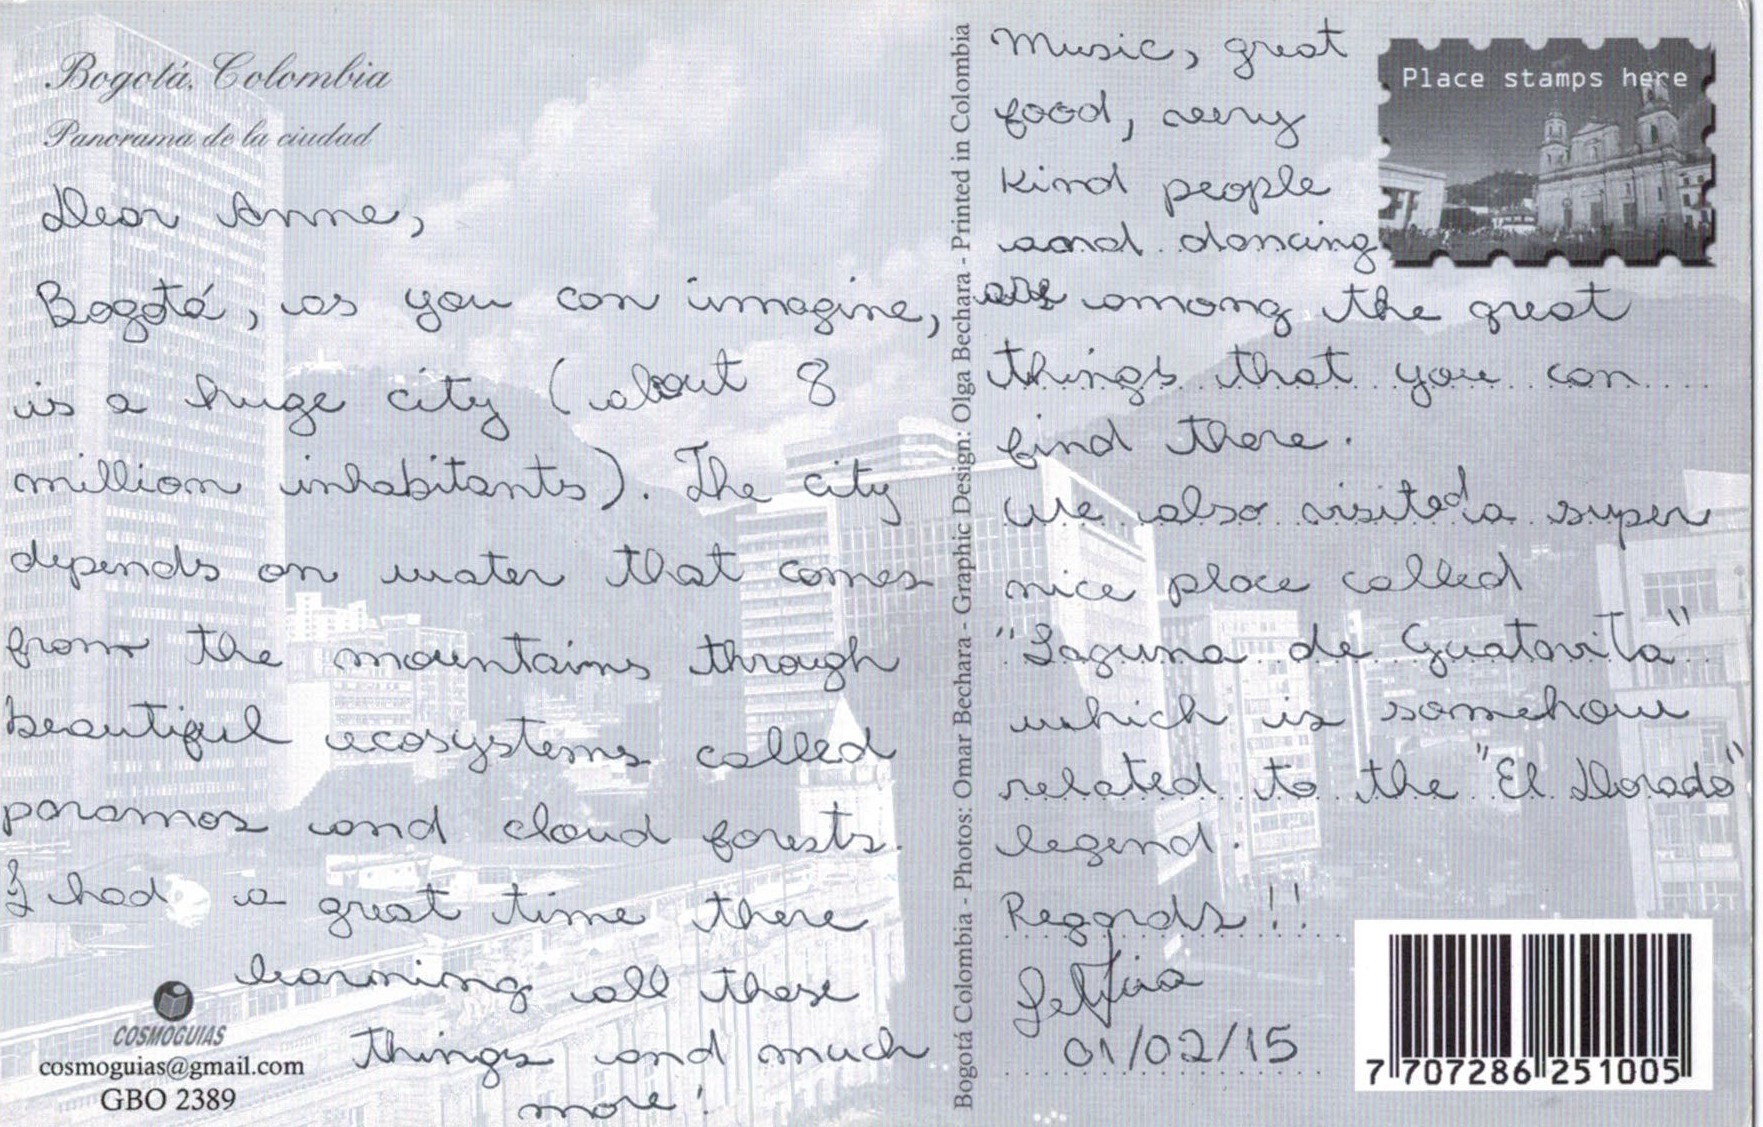 Bogotá, Colombia
Panorama de la ciudad
Dear Anne,
Bogotá, as you can imagine,
is a huge city (about 8
million inhabitants). The city
depends on water that comes
from the mountains through
beautiful ecosystems called
paramos and cloud forests.
I had a great time there
learning all these
things and much
more!
COSMOGUIAS
cosmoguias@gmail.com
GBO 2389
Bogotá Colombia - Photos: Omar Bechara - Graphic Design: Olga Bechara - Printed in Colombia
Music, great
food, very
kind people
and dancing
are among the great
things that you can
find there.
We also visited a super
nice place called
"Laguna de Guatavita"
which is somehow
related to the "El Dorado"
legend.
Regards!!
Letícia
01/02/15
Place stamps here
7 707286 251005